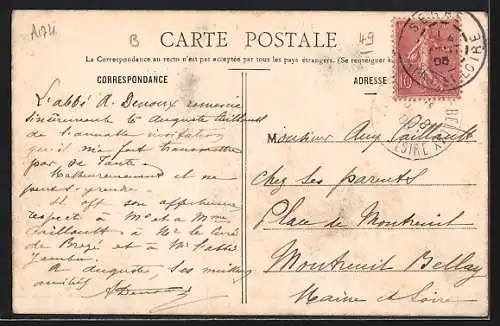 A174
B
49
CARTE POSTALE
La Correspondance au recto n'est pas acceptée par tous les pays étrangers. (Se renseigner
CORRESPONDANCE
ADRESSE
L'abbé A. Denoux remercie
sincèrement Auguste Taillault
de l'aimable invitation
qu'il me fait transmettre
par sa Tante.
Malheureusement il ne
peut
Il off son affectueux
respect à Mr et à Mme
Taillault à Mr le Curé
de Brézé et à Mr l'abbé
A Auguste, ses meill
amitiés
ADenoux
Monsieur Aug Taillault
chez ses parents
Place de Montreuil
Montreuil Bellay
Maine et Loire